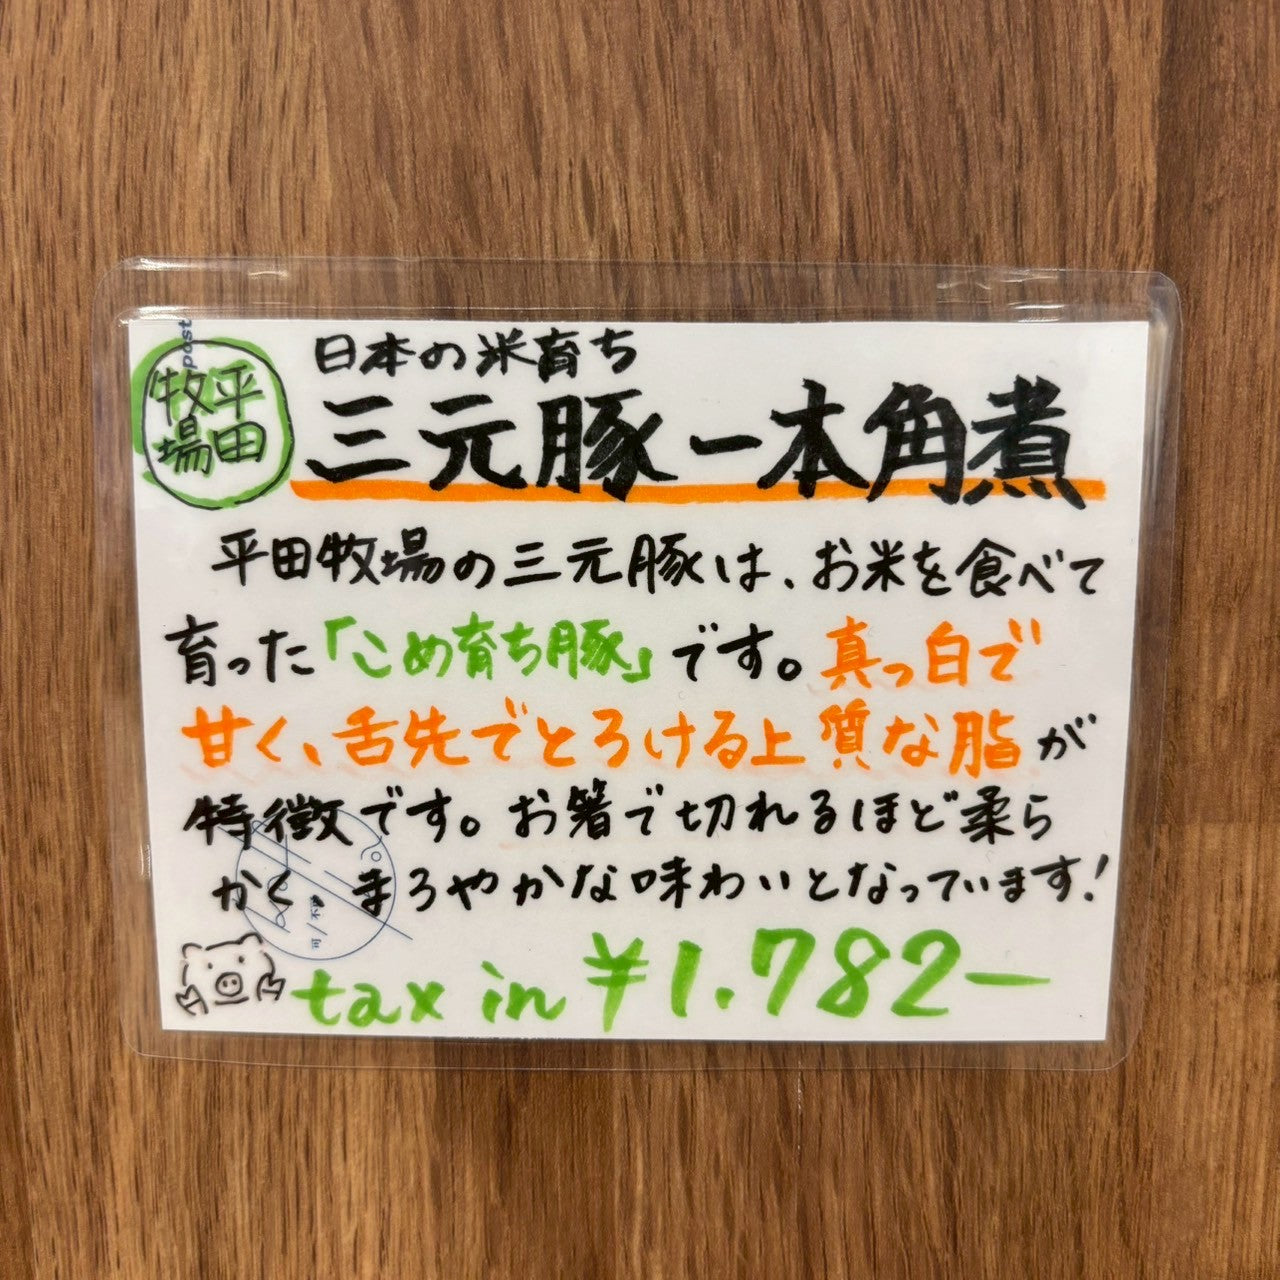 平田
牧場
post
日本の米育ち
三元豚一本角煮
平田牧場の三元豚は、お米を食べて
育った「こめ育ち豚」です。真っ白で
甘く、舌先でとろける上質な脂が
特徴です。お箸で切れるほど柔ら
かく、まろやかな味わいとなっています!
tax in ¥1.782-